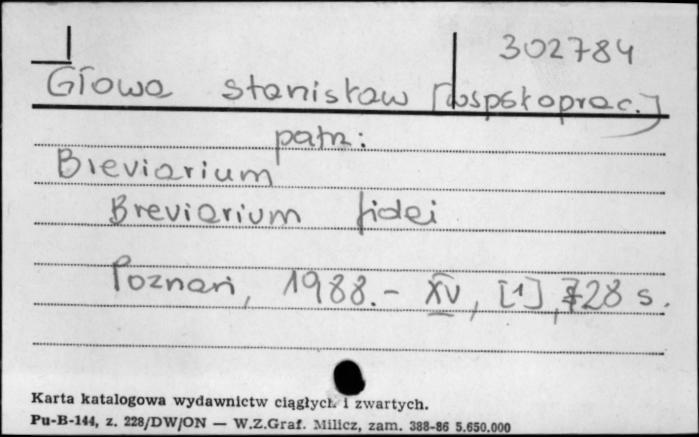 302784
Głowa Stanisław [współoprac.]
patrz:
Breviarium
Breviarium fidei
Poznań, 1988. – XV, [1], 728 s.
Karta katalogowa wydawnictw ciągłych i zwartych.
Pu-B-144, z. 228/DW/ON — W.Z.Graf. Milicz, zam. 388-86 5.650.000